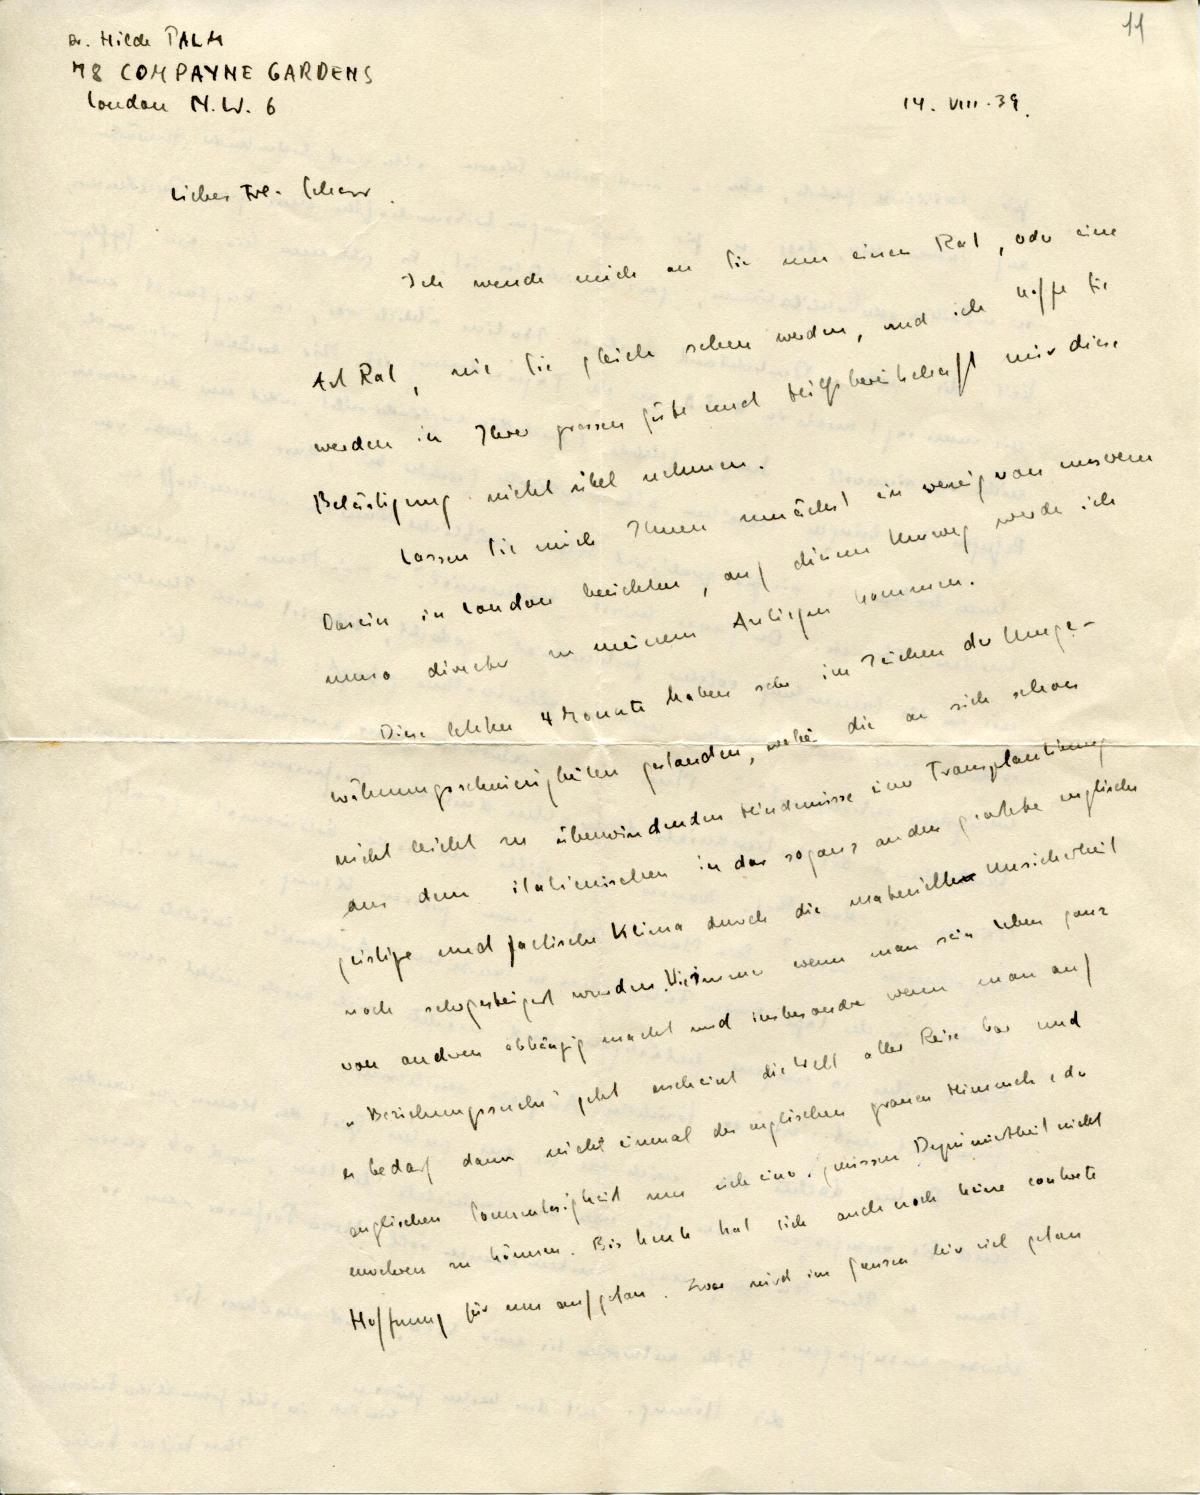 11
Dr. Hilde PALM
78 COMPAYNE GARDENS
London N.W. 6
14. VIII. 39.
Liebes Frl. Scherr.
Ich wende mich an Sie um einen Rat, oder eine
Art Rat, wie Sie gleich sehen werden, und ich hoffe Sie
werden in Ihrer grossen Güte und Hilfsbereitschaft mir diese
Belästigung nicht übel nehmen.
Lassen Sie mich Ihnen zunächst ein wenig von unserem
Dasein in London berichten, auf diesem Umweg werde ich
umso direkter zu meinem Anliegen kommen.
Diese letzten 4 Monate haben sehr im Zeichen der Einge-
wöhnungsschwierigkeiten gestanden, wobei die an sich schon
nicht leicht zu überwindenden Hindernisse einer Transplantierung
aus dem italienischen in das so ganz anders geartete englische
geistige und faktische Klima durch die materielle Unsicherheit
noch sehr gesteigert wurden. Wie immer wenn man sein Leben ganz
von andren abhängig macht und insbesondre wenn man auf
„Beziehungssuche" geht erscheint die Welt aller Reize bar und
es bedarf dann nicht einmal des englischen grauen Himmels, der
englischen Sonnenlosigkeit um sich einer gewissen Deprimiertheit nicht
erwehren zu können. Bis heute hat sich auch noch keine konkrete
Hoffnung für uns aufgetan. Zwar wird im ganzen hier viel getan